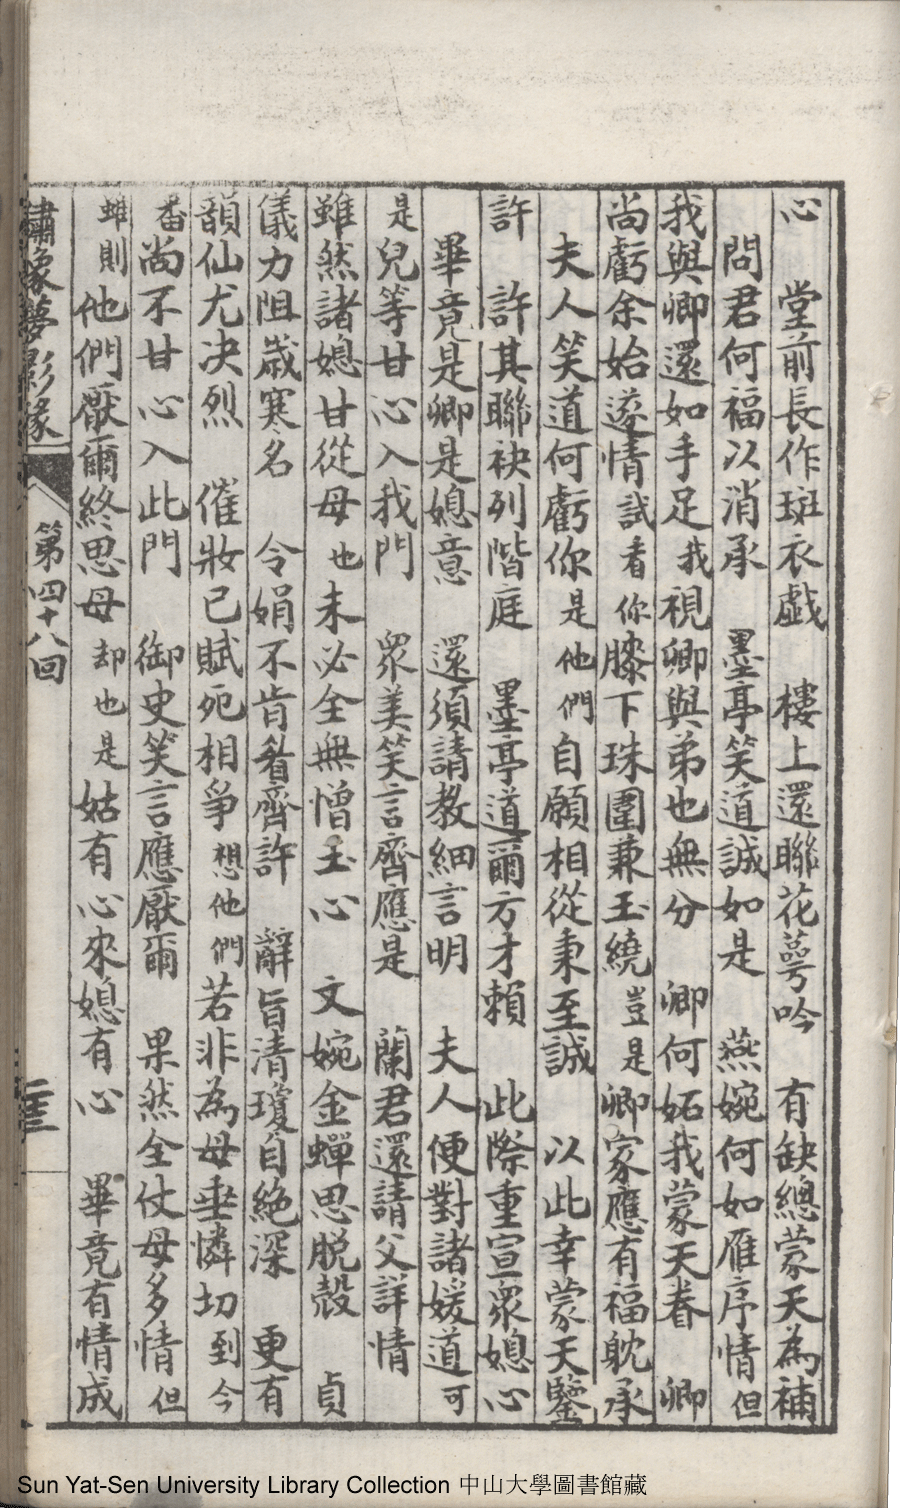 心　堂前長作斑衣戯　樓上還聯花萼吟　有缺總蒙天為補
問君何福以消承　墨亭笑道誠如是　燕婉何如雁序情但
我與卿還如手足我視卿與弟也無分　卿何妬我蒙天眷　卿
尚虧余始遂情試看你膝下珠圍兼玉繞豈是卿家應有福躭承
夫人笑道何虧你是他們自願相從秉至誠　以此幸蒙天鑒
許　許其聯袂列階庭　墨亭道爾方才賴　此際重宣眾媳心
畢竟是卿是媳意　還須請教細言明　夫人便對諸媛道可
是兒等甘心入我門　眾美笑言齊應是　蘭君還請父詳情
雖然諸媳甘從母也未必全無憎玉心　文婉金蟬思脱殻　貞
儀力阻歲寒名　令娟不肯眷齊許　辭旨清瓊自絶深　更有
韻仙尤决烈　催妝已賦死相爭想他們若非為母垂憐切到今
番尚不甘心入此門　御史笑言應厭爾　果然全仗母多情但
雖則他們厭爾終思母却也是姑有心來媳有心　畢竟有情成
繡像夢影緣　第四十八回
Sun Yat-Sen University Library Collection 中山大學圖書館藏